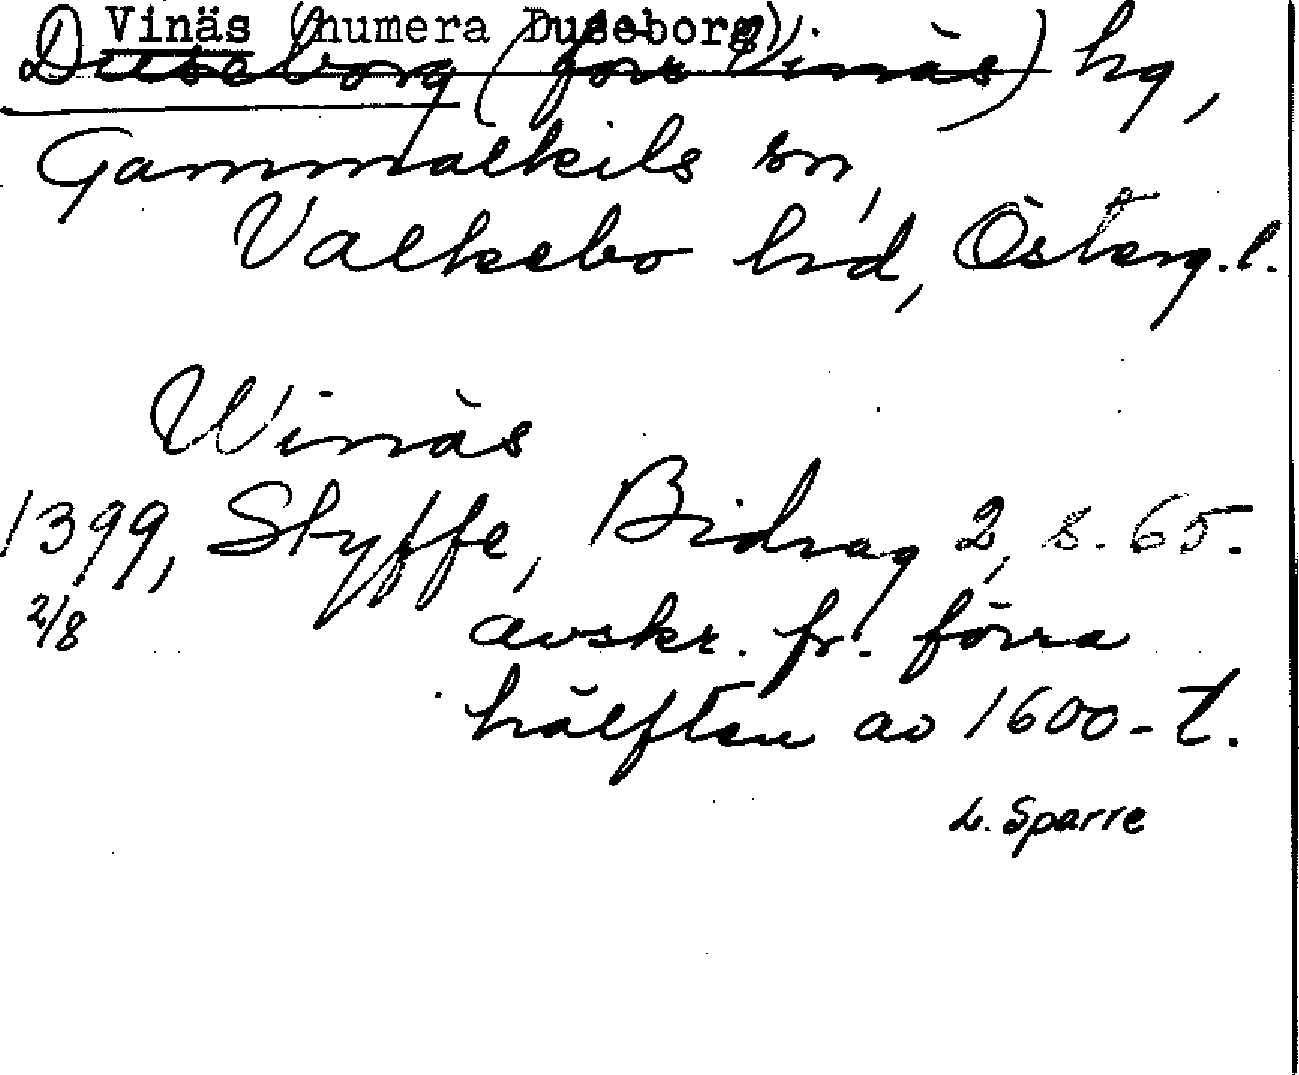 Vinäs (numera Duseborg).
Duseborg (förr Vinäs) hg,
Gammalkils sn,
Valkebo hd, Österg.l.
Winäs
1399, Styffe, Bidrag 2, s. 65.
2/8 avskr. fr. förra
hälften av 1600-t.
L. Sparre